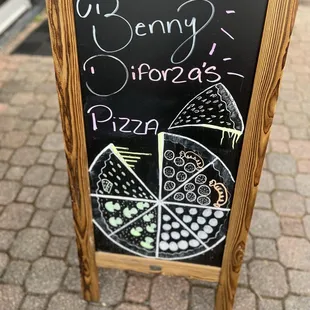 Benny
Diforza's
Pizza